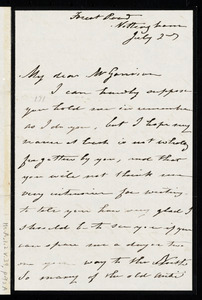 Forest Road
Nottingham
July 2nd
My dear Mr Garrison
I can hardly suppose
you hold me in remembrance
as I do you, but I hope my
name at least is not wholly
forgotten by you, and that
you will not think me
very intrusive for writing
to tell you how very glad I
should be to see you if you
can spare me a day or two
on your way to the North.
So many of the old Anti